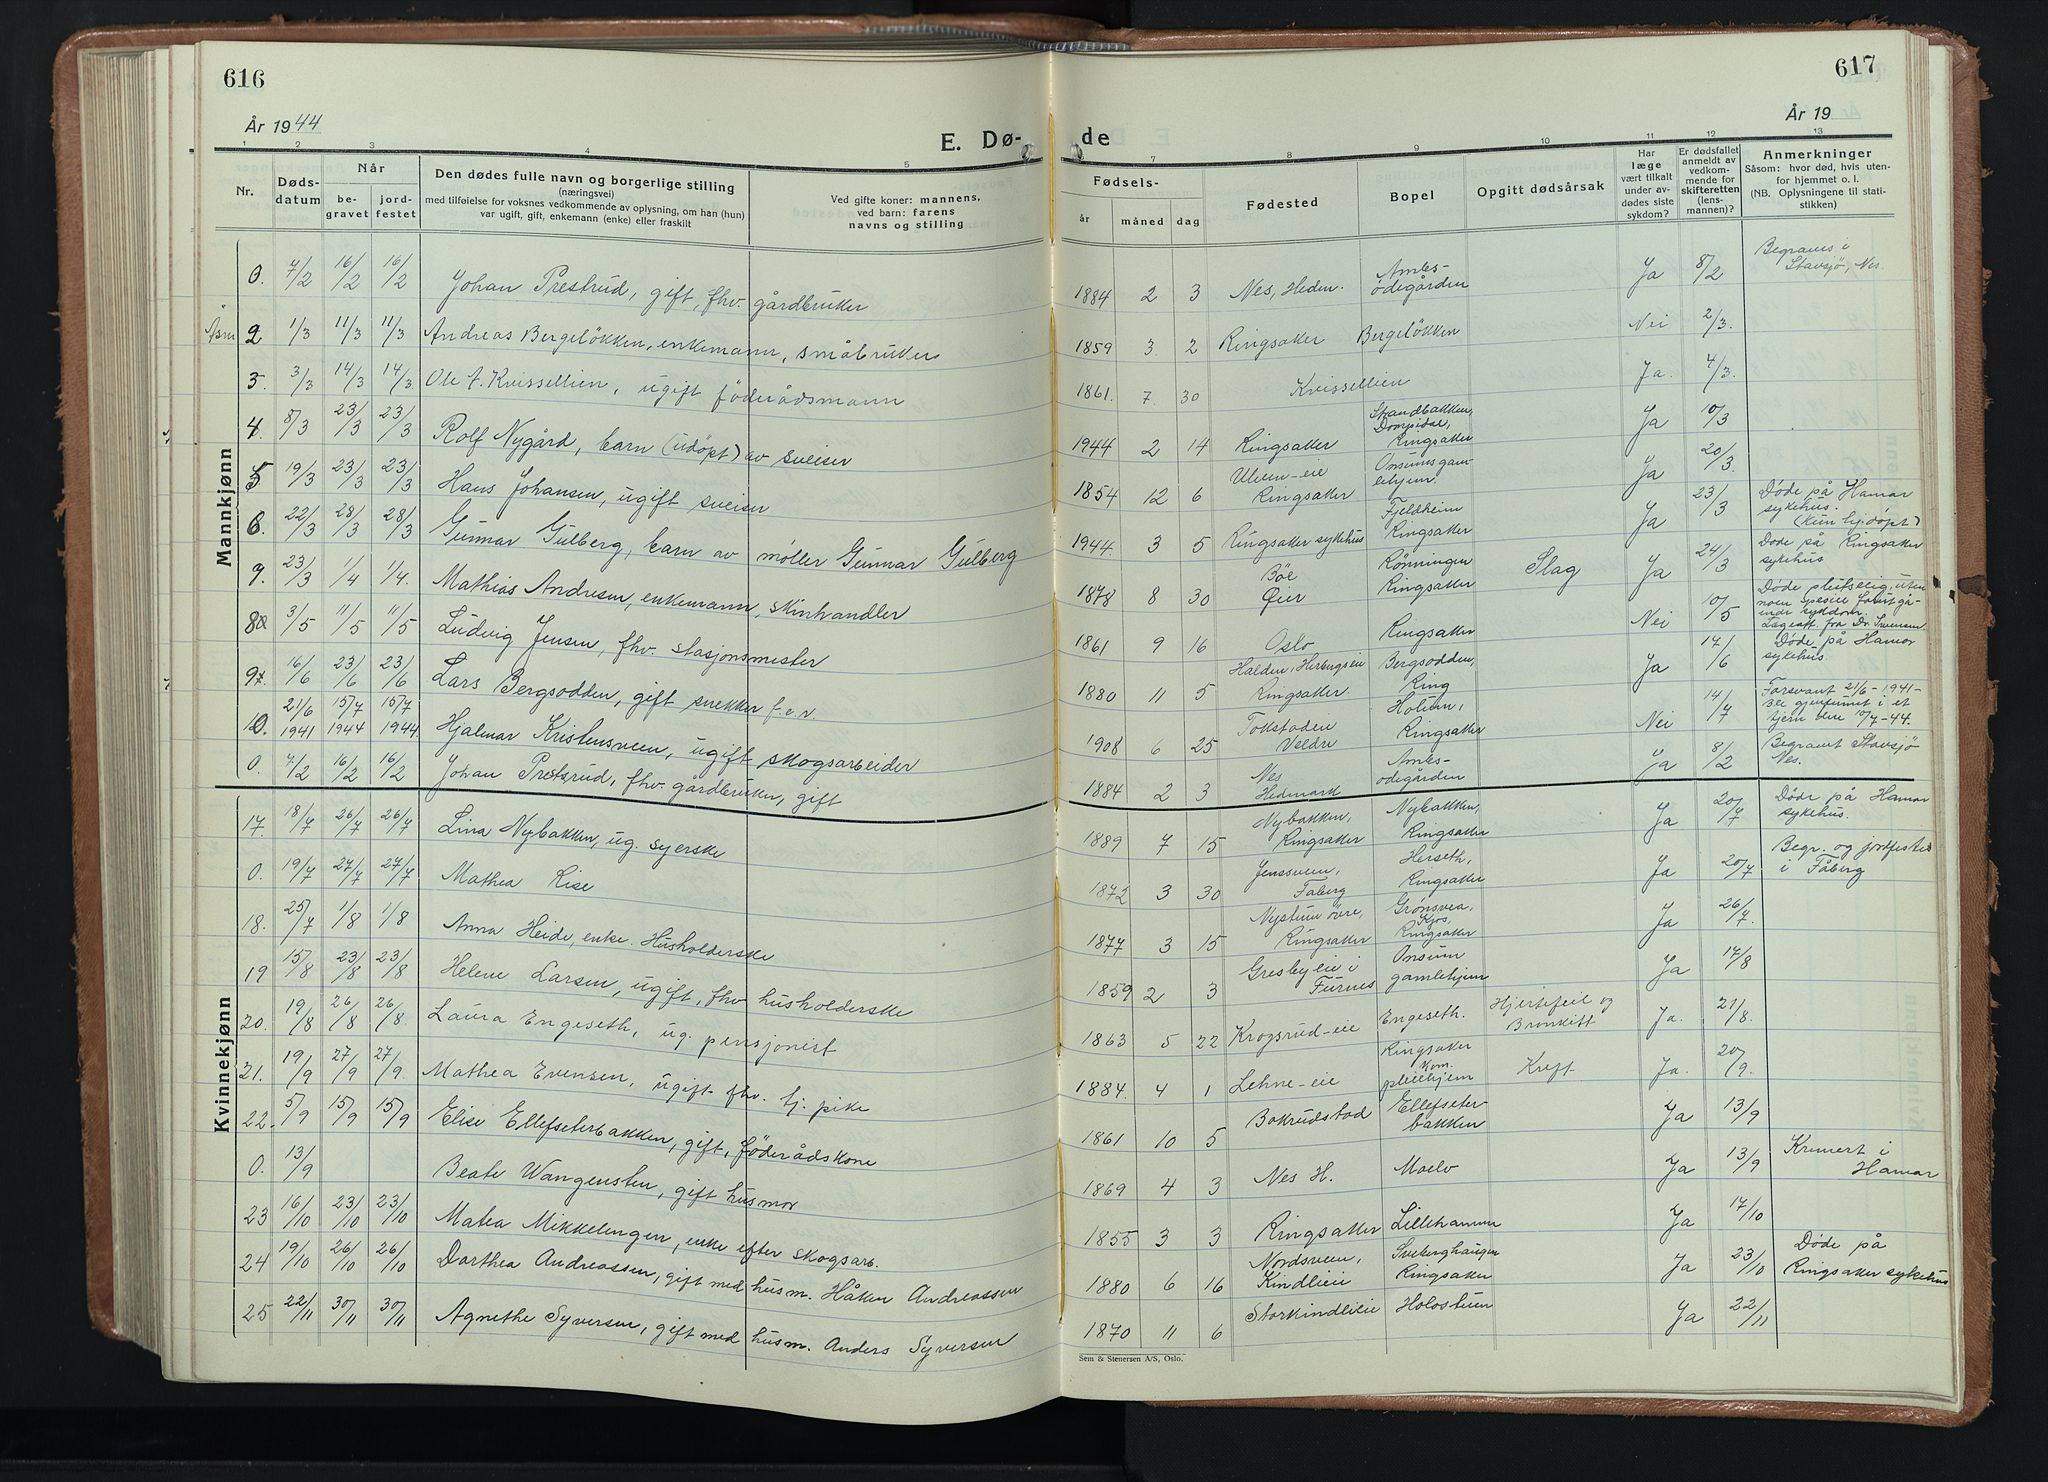 616
617
År 1944
År 19
E. Dø-
de
1 2 3 4 5 7 8 9 10 11 12 13
Nr.
Døds-
datum
Når
be-
gravet
jord-
festet
Den dødes fulle navn og borgerlige stilling
(næringsvei)
med tilføielse for voksnes vedkommende av oplysning, om han (hun)
var ugift, gift, enkemann (enke) eller fraskilt
Ved gifte koner: mannens,
ved barn: farens
navns og stilling
Fødsels-
år måned dag
Fødested
Bopel
Opgitt dødsårsak
Har
læge
vært tilkalt
under av-
dødes siste
sykdom?
Er dødsfallet
anmeldt av
vedkom-
mende for
skifteretten
(lens-
mannen)?
Anmerkninger
Såsom: hvor død, hvis uten-
for hjemmet o. l.
(NB. Oplysningene til stati-
stikken)
Mannkjønn
0. 7/2 16/2 16/2 Johan Prestrud, gift, fhv. gårdbruker 1884 2 3 Nes, Hedm. Ambs-
ødegården Ja 8/2 Begraves i
Stavsjø, Nes.
2 1/3 11/3 11/3 Andreas Bergeløkken, enkemann, småbruker 1859 3 2 Ringsaker Bergeløkken Nei 2/3.
3. 3/3 14/3 14/3 Ole A. Kvissellien, ugift föderådsmann 1861. 7. 30 Kvissellien Ja. 4/3.
4. 8/3 23/3 23/3 Rolf Nygård, barn (udöpt) av sveiser 1944 2 14 Ringsaker Strandbakken,
Ringsaker Ja 10/3
5 19/3 23/3 23/3 Hans Johansen, ugift sveiser 1854 12 6 Ulven-eie
Ringsaker Onsumsgam-
lehjem. Ja 20/3.
6. 22/3 28/3 28/3 Gunnar Gulberg, barn av møller Gunnar Gulberg 1944. 3 5 Ringsaker sykehus Fjeldheim
Ringsaker Ja 23/3 Døde på Hamar
sykehus.
(Kun hj.döpt)
9. 23/3 1/4 1/4. Mathias Andresen, enkemann, skinhandler 1878 8 30 Böe
Øier Rönningen
Ringsaker Slag Ja 24/3 Døde på Ringsaker
sykehus
8 3/5 11/5 11/5 Ludvig Jensen, fhv. stasjonsmester 1861 9 16 Oslo Ringsaker Nei 10/5 Döde plutselig, uten
noen spesiell forutgå-
ende sykdom.
Lægeatt. fra Dr.
9. 16/6 23/6 23/6 Lars Bergsodden, gift snekker f.e.v. 1880 11 5 Halden, Herbergseie
Ringsaker. Bergsodden,
Ring Ja 14/6 Døde på Hamar
sykehus.
10. 21/6 1941 15/7 1944 15/7 1944. Hjalmar Kristensveen, ugift skogsarbeider 1908 6 25 Tokstadeie
Veldre Holum,
Ringsaker Nei 14/7 Forsvant 21/6-1941-
Ble gjenfunnet i et
tjern blev 10/7-44.
0. 7/2 16/2 16/2 Johan Prestrud, fhv. gårdbruker, gift 1884 2 3 Nes
Hedmark Ambs-
odegården Ja 8/2 Begravet Stavsjø
Nes.
Kvinnekjønn
17. 18/7 26/7 26/7 Lina Nybakken, ug. syerske 1889 7 15 Nybakken,
Ringsaker Nybakken,
Ringsaker Ja 20/7 Døde på Hamar
sykehus.
0. 19/7 27/7 27/7 Mathea Rise 1872 3 30 Jenssveen,
Faberg Herseth,
Ringsaker Ja 20/7 Begr. og jordfestes
i Fåberg
18. 25/7 1/8 1/8 Anna Heide, enke. Husholderske 1877 3 15 Nystuen övre,
Ringsaker Grønsvea,
Kjos,
Ringsaker Ja 26/7.
19 15/8 23/8 23/8 Helene Larsen, ugift, fhv husholderske 1859 2 3 Gresbyeie i
Furnes Onsum
gamlehjem Ja 17/8
20. 19/8 26/8 26/8. Laura Engeseth, ug. pensjonist 1863 5 22 Krogsrud-eie Engeseth. Hjertefeil og
Bronkitt Ja. 21/8.
21. 19/9 27/9 27/9. Mathea Evensen, ugift fhv. tj. pike 1884. 4 1 Lehne-eie Ringsaker
kom.
pleiehjem Kreft Ja. 20/9.
22. 5/9 15/9 15/9 Elise Ellefseterbakken, gift, föderådskone 1861 10 5 Bakrudstad Ellefseter-
bakken Ja 13/9
0. 13/9 Beate Wangensten, gift husmor 1869 4 3 Nes H. Moelv Ja 13/9 Kremert i
Hamar
23 16/10 23/10 23/10 Matea Mikkelengen, enke efter skogsarb. 1855 3 3 Ringsaker Lillehammer Ja 17/10
24 19/10 26/10 26/10 Dorthea Andreassen, gift med husm. Håken Andreassen 1880 6 16 Nordsveen,
Kindlieie Sveberghaugen
Ringsaker Ja 23/10 Døde på
Ringsaker sykehus
25 22/11 30/11 30/11 Agnethe Syversen, gift med husm. Anders Syversen 1870 11 6 Storkindlieie Holostuen Ja 22/11
Sem & Stenersen A/S, Oslo.